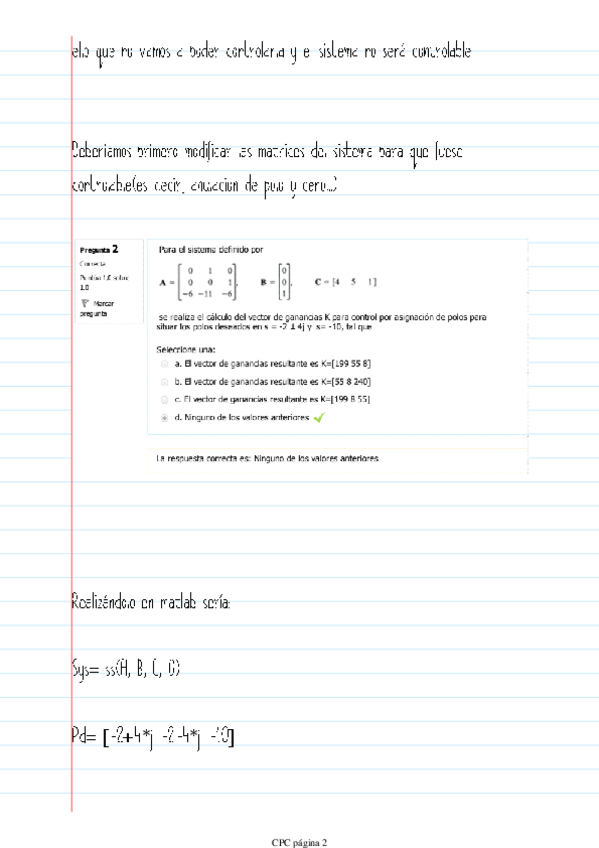 ello que no vamos a poder controlarla y el sistema no será controlable
Deberíamos primero modificar las matrices del sistema para que fuese
controlable(es decir, anulación de polo y cero...)
Pregunta 2
Correcta
Puntúa 1,0 sobre
1,0
Marcar
pregunta
Para el sistema definido por
A = [ 0 1 0
0 0 1
-6 -11 -6 ], B = [ 0
0
1 ], C = [4 5 1]
se realiza el cálculo del vector de ganancias K para control por asignación de polos para
situar los polos deseados en s = -2 ± 4j y s= -10, tal que
Seleccione una:
a. El vector de ganancias resultante es K=[199 55 8]
b. El vector de ganancias resultante es K=[55 8 240]
c. El vector de ganancias resultante es K=[199 8 55]
d. Ninguno de los valores anteriores
La respuesta correcta es: Ninguno de los valores anteriores
Realizándolo en matlab sería:
Sys= ss(A, B, C, 0)
Pd= [-2+4*j -2-4*j -10]
CPC página 2